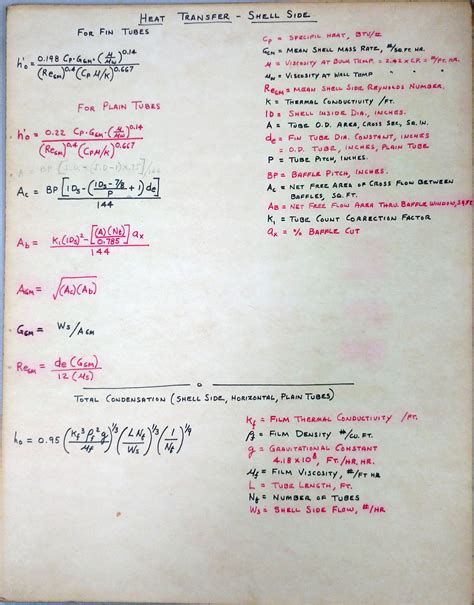 HEAT TRANSFER - SHELL SIDE
FOR FIN TUBES
h'o = 0.198 Cp·GGM·(μ/μw)^0.14 / (ReGM)^0.4 (Cp μ/K)^0.667
FOR PLAIN TUBES
h'o = 0.22 Cp·GGM·(μ/μw)^0.14 / (ReGM)^0.4 (Cp μ/K)^0.667
Ac = BP [IDs - (IDs - 7/8 / P + 1) de] / 144
Ab = K1(IDs)² - [(A)(Nt) / 0.785] ax / 144
AGM = √(Ac)(Ab)
GGM = Ws/AGM
ReGM = de (GGM) / 12 (μs)
Cp = SPECIFIC HEAT, BTU/#
GGM = MEAN SHELL MASS RATE, #/SQ.FT. HR.
μ = VISCOSITY AT BULK TEMP. = 2.42 x CK = #/FT. HR.
μw = VISCOSITY AT WALL TEMP " "
ReGM = MEAN SHELL SIDE REYNOLDS NUMBER.
K = THERMAL CONDUCTIVITY /FT.
IDs = SHELL INSIDE DIA., INCHES.
A = TUBE O.D. AREA, CROSS SEC, SQ. IN.
de = FIN TUBE DIA. CONSTANT, INCHES
= O.D. TUBE, INCHES, PLAIN TUBE
P = TUBE PITCH, INCHES.
BP = BAFFLE PITCH, INCHES.
Ac = NET FREE AREA OF CROSS FLOW BETWEEN
BAFFLES, SQ. FT.
AB = NET FREE FLOW AREA THRU. BAFFLE WINDOW, SQ.FT.
K1 = TUBE COUNT CORRECTION FACTOR
ax = % BAFFLE CUT
TOTAL CONDENSATION (SHELL SIDE, HORIZONTAL, PLAIN TUBES)
ho = 0.95 (Kf³ ρf² g / μf)^1/3 (L Nt / Ws)^1/3 (1 / Nt)^1/9
Kf = FILM THERMAL CONDUCTIVITY /FT.
ρf = FILM DENSITY #/CU. FT.
g = GRAVITATIONAL CONSTANT
4.18 x 10⁸, FT./HR. HR.
μf = FILM VISCOSITY, #/FT HR
L = TUBE LENGTH, FT.
Nt = NUMBER OF TUBES
Ws = SHELL SIDE FLOW, #/HR